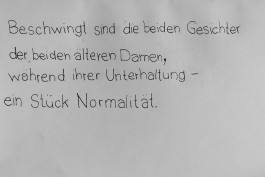 Beschwingt sind die beiden Gesichter
der beiden älteren Damen,
während ihrer Unterhaltung –
ein Stück Normalität.